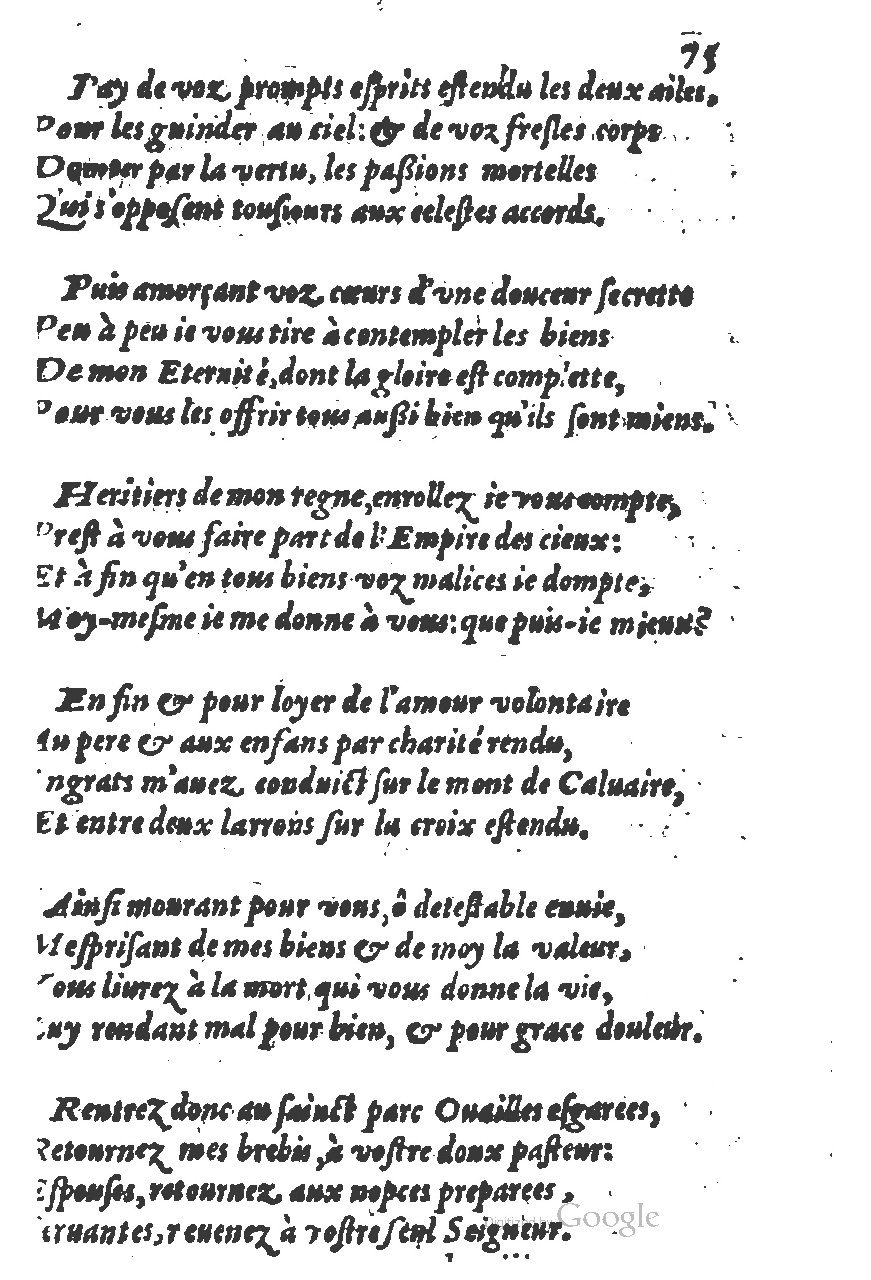 75
I'ay de voz prompts esprits estendu les deux ailes,
Pour les guinder au ciel: & de voz fresles corps
Domter par la vertu, les passions mortelles
Qui s'opposent tousiours aux celestes accords.
Puis amorçant voz cœurs d'vne douceur secrette
Peu à peu ie vous tire à contempler les biens
De mon Eternité, dont la gloire est complette,
Pour vous les offrir tous aussi bien qu'ils sont miens.
Heritiers de mon regne, enrollez ie vous compte,
Prest à vous faire part de l'Empire des cieux:
Et à fin qu'en tous biens voz malices ie dompte,
Moy-mesme ie me donne à vous: que puis-ie mieux?
En fin & pour loyer de l'amour volontaire
Au pere & aux enfans par charité rendu,
Ingrats m'auez conduict sur le mont de Caluaire,
Et entre deux larrons sur la croix estendu.
Ainsi mourant pour vous, ô detestable enuie,
Mesprisant de mes biens & de moy la valeur,
Vous liurez à la mort, qui vous donne la vie,
Luy rendant mal pour bien, & pour grace douleur.
Rentrez donc au sainct parc Ouailles esgarees,
Retournez mes brebis, à vostre doux pasteur:
Espouses, retournez aux nopces preparees,
Seruantes, reuenez à vostre seul Seigneur.
Digitized by Google